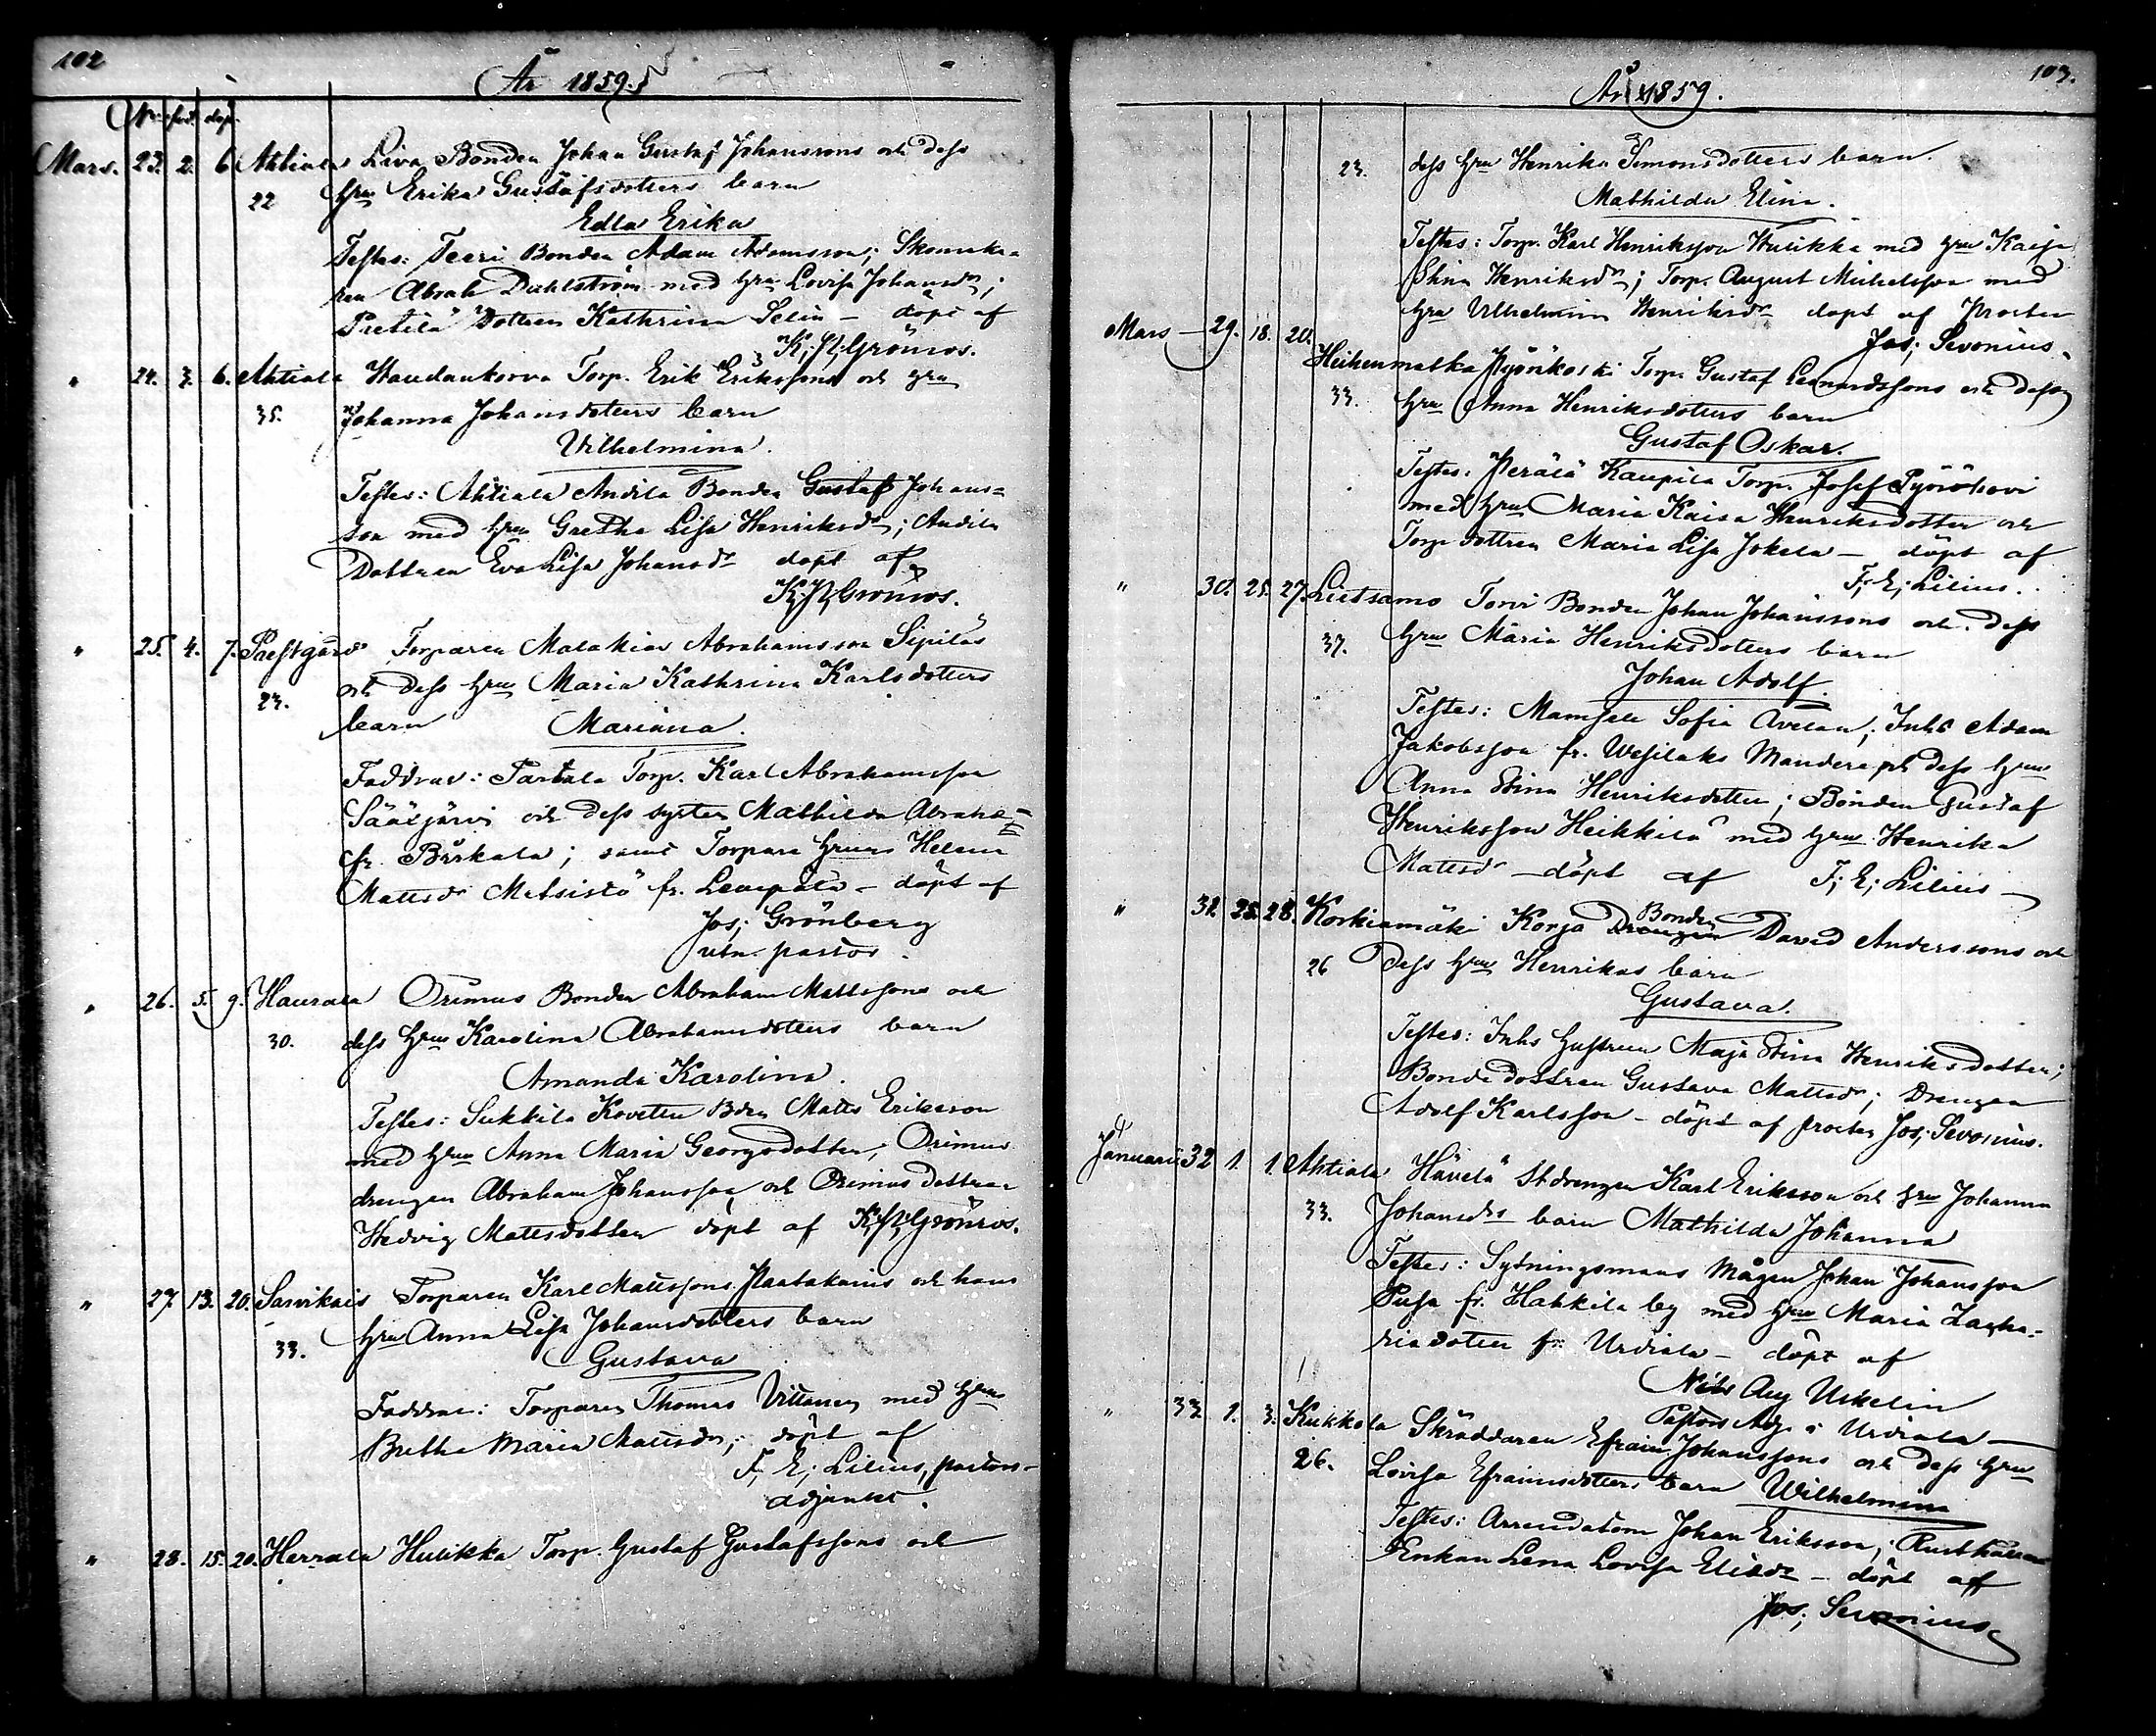 102
År 1859.
No föd. döp.
Mars. 23. 2. 6. Ahtiala Liva Bonden Johan Gustaf Johanssons och dess
22 hru Erika Gustafsdotters barn
Edla Erika
Testes: Teeri Bonden Adam Adamsson; Skomaka-
ren Abrah Dahlström med hru Lovisa Johansdr;
Pietilä Dottren Kathrina Selin - döpt af
K; H; Grönros.
" 24. 3. 6. Ahtiala Haudankorva Torp. Erik Erikssons och hru
35. Johanna Johansdotters barn
Vilhelmina.
Testes: Ahtiala Andila Bonden Gustaf Johans=
son med hru Gretha Lisa Henriksdr; Andila
Dottren Eva Lisa Johansdr döpt af
K; H; Grönros.
" 25. 4. 7. Prestgård Torparen Malakias Abrahamsson Sipiläs
23. och dess hru Maria Kathrina Karlsdotters
barn Mariana.
Faddrar: Partala Torp. Karl Abrahamsson
Sääxjärvi och dess syster Mathilda Abrahs=
fr. Birkala; samt Torpare hrun Helena
Mattsdr Metsistö fr. Lempälä - döpt af
Jos; Grönberg
utn. pastor.
" 26. 5. 9. Haurala Orimus Bonden Abraham Mattssons och
30. dess hru Karolina Abrahamsdotters barn
Amanda Karolina.
Testes: Sukkila Kovetin Bden Matts Eriksson
med hru Anna Maria Georgsdotter, Orimus
drengen Abraham Johansson och Orimus dottren
Hedvig Mattsdotter döpt af K; H; Grönros.
" 27. 13. 20. Sarvikais Torparen Karl Mattssons Paatakains och hans
33. hru Anna Lisa Johansdotters barn
Gustava
Faddrar: Torparen Thomas Vittanen med hru
Bretha Maria Mattsdr; döpt af
F; E; Lilius, pastors-
adjunkt.
" 28. 15. 20. Herrala Hulikka Torp. Gustaf Gustafssons och
103.
År 1859.
23. dess hru Henrika Simonsdotters barn.
Mathilda Elina.
Testes: Torp. Karl Henriksson Hulikka med hru Kaisa
Stina Henriksdr; Torp. August Michelsson med
hru Vilhelmina Henriksdr döpt af Prosten
Jos; Sevonius.
Mars - 29. 18. 20.
Heikenmatka Pyörikoski Torp. Gustaf Leanardssons och dess
33. hru Anna Henriksdotters barn
Gustaf Oskar.
Testes: Perälä Kaupila Torp. Josef Pyörökovi
med hru Maria Kaisa Henriksdotter och
Torp dottren Maria Lisa Jokela - döpt af
F; E; Lilius.
" 30. 25. 27. Lietsamo Torvi Bonden Johan Johanssons och dess
37. hru Maria Henriksdotters barn
Johan Adolf.
Testes: Mamsell Sofia Avelan; Inhs Adam
Jakobsson fr. Wesilaks Mandere och dess hru
Anna Stina Henriksdotter; Bonden Gustaf
Henriksson Heikkilä med hru Henrika
Mattsdr - döpt af F; E; Lilius -
" 31. 25. 28. Korkiamäki Korja Drengen Bonden David Anderssons och
26 dess hru Henrikas barn
Gustava.
Testes: Inhs hustrun Maja Stina Henriksdotter;
Bonde dottren Gustava Mattsdr; Drengen
Adolf Karlsson - döpt af prosten Jos; Sevonius.
Januarii 32 1. 1. Ahtiala Hävelä Stdrengen Karl Eriksson och hru Johanna
33. Johansdrs barn Mathilda Johanna
Testes: Sytningsmans Mågen Johan Johansson
Pusa fr. Hakkila by med hru Maria Zacha-
riadotter fr. Urdiala - döpt af
Nils Aug Uskelin
Pastors Adj. i Urdiala -
" 33. 1. 3. Kukkola Skräddaren Efraim Johanssons och dess hru
26. Lovisa Efraimsdotters barn Wilhelmina
Testes: Arrendatorn Johan Eriksson; Rusthållar
Enkan Lena Lovisa Eliedr - döpt af
Jos; Sevonius